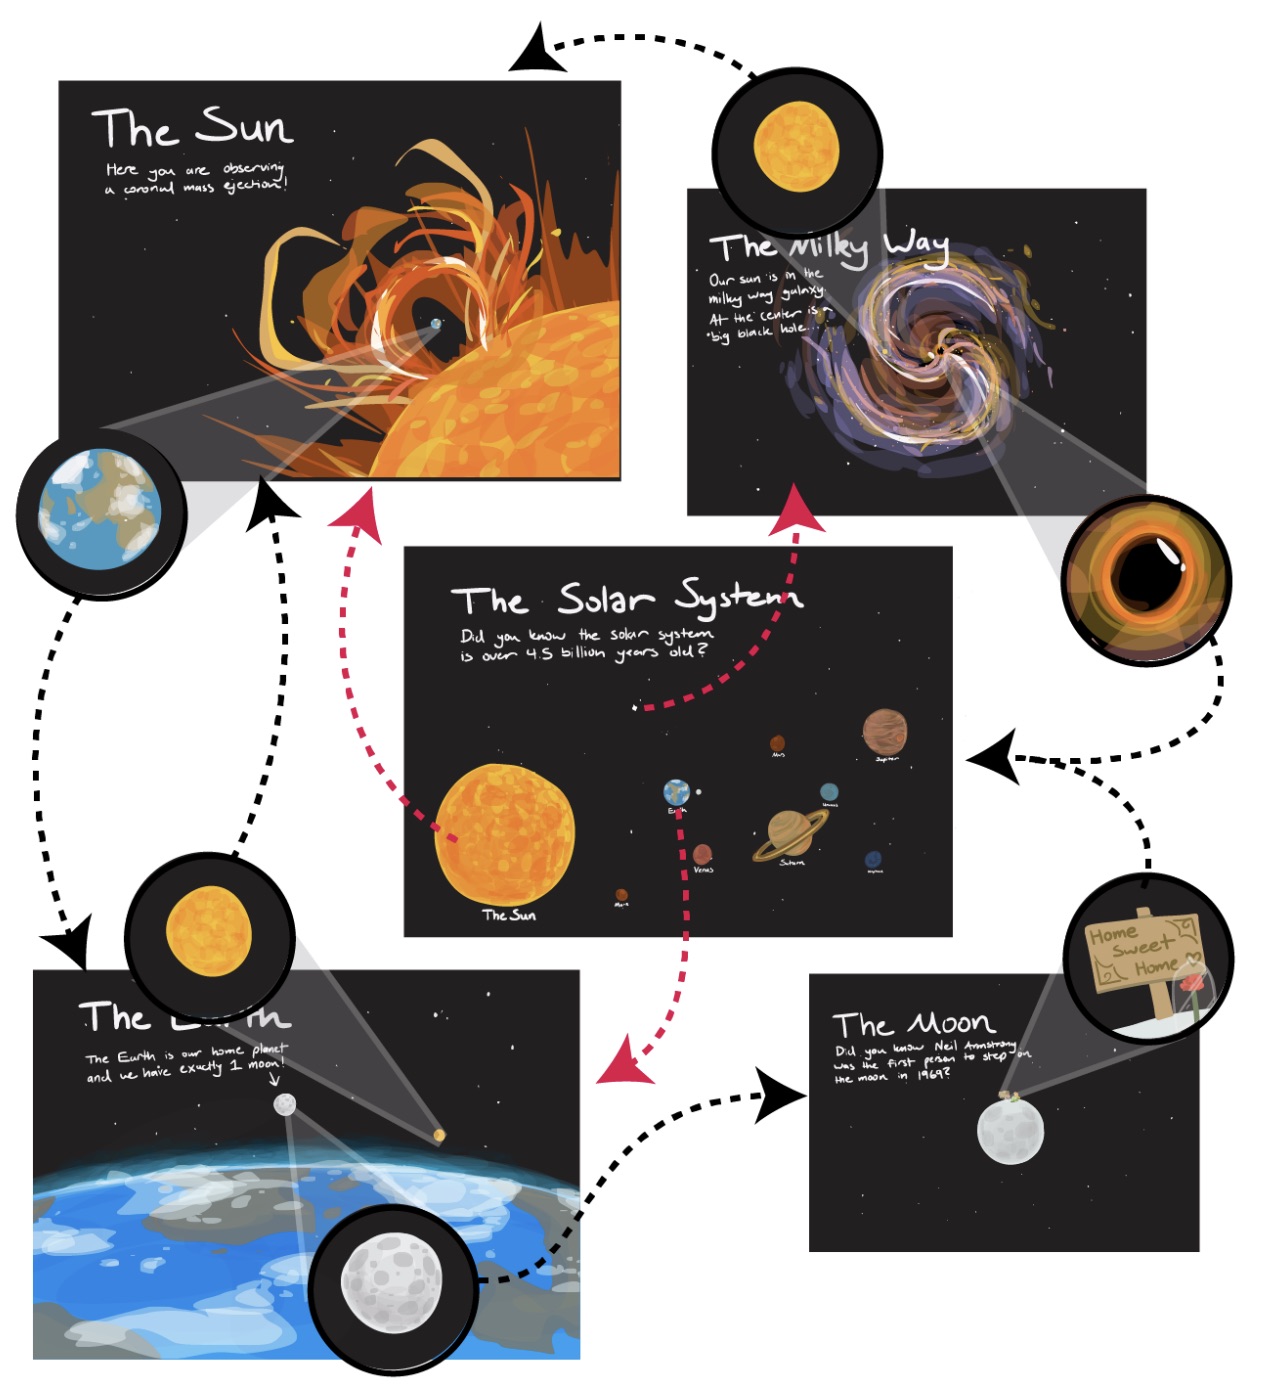 The Sun
Here you are observing
a coronal mass ejection!
The Milky Way
Our sun is in the
milky way galaxy.
At the center is a
big black hole...
The Solar System
Did you know the solar system
is over 4.5 billion years old?
Mars
Jupiter
Earth
Uranus
Saturn
Venus
Neptune
The Sun
The Earth
The Earth is our home planet
and we have exactly 1 moon!
Home
Sweet
Home
The Moon
Did you know Neil Armstrong
was the first person to step on
the moon in 1969?